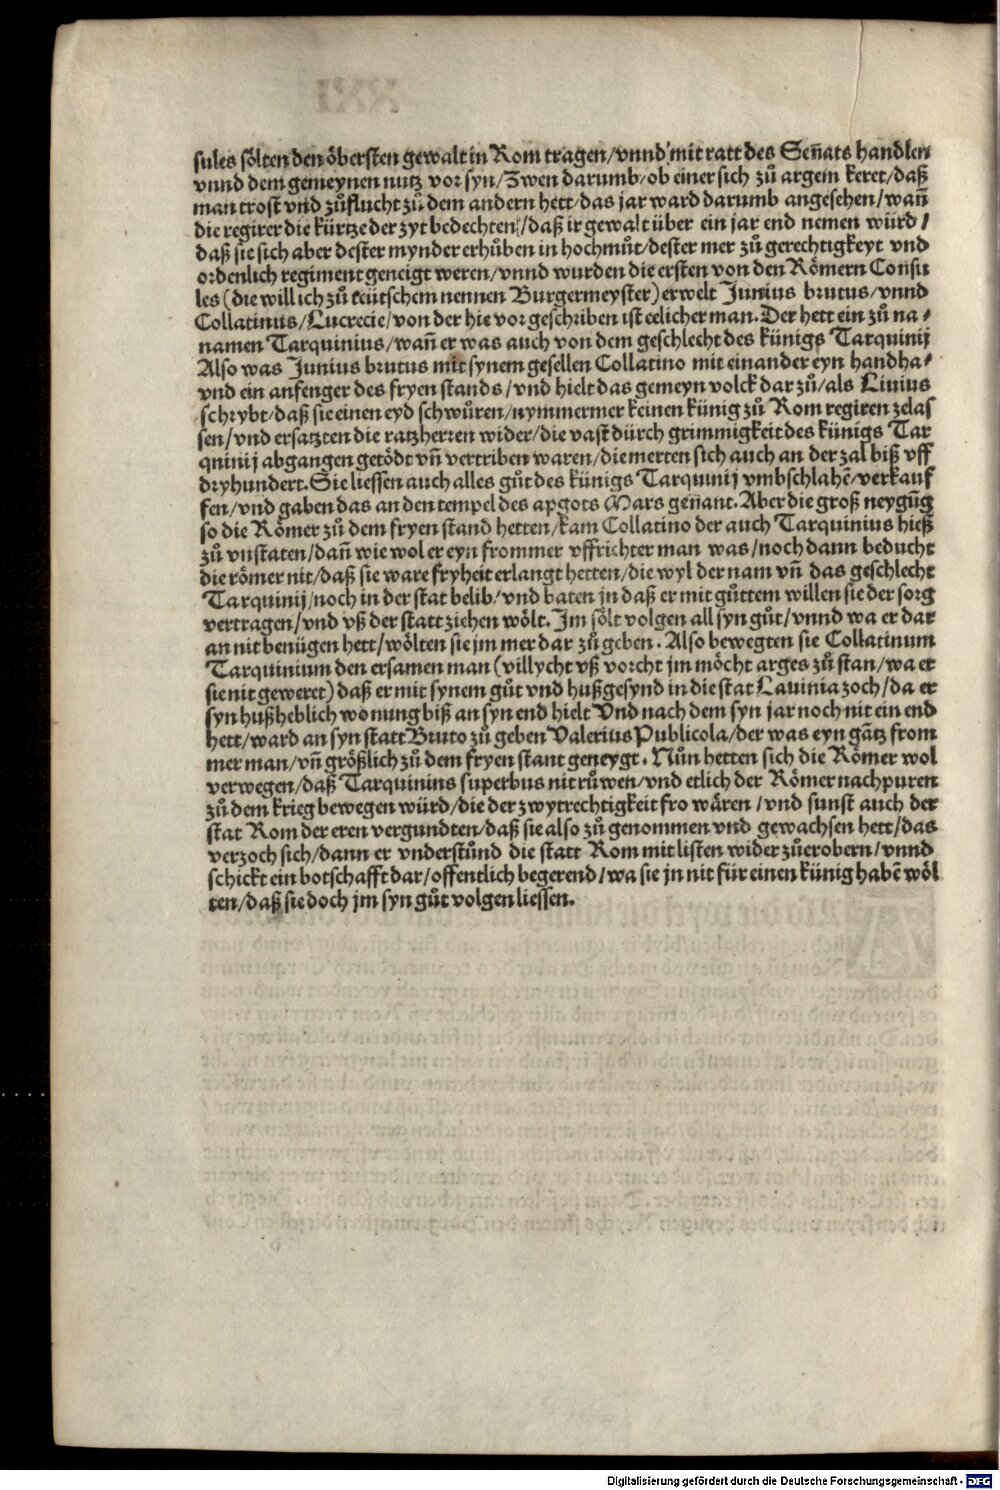 sules sölten den öbersten gewalt in Rom tragen/vnnd mit ratt des Señats handlen
vnnd dem gemeynen nutz vor syn/Zwen darumb/ob einer sich zů argem keret/daß
man trost vnd zůflucht zů dem andern hett/das jar ward darumb angesehen/wañ
die regirer die kürtze der zyt bedechten/daß ir gewalt über ein jar end nemen würd/
daß sie sich aber dester mynder erhůben in hochmůt/dester mer zů gerechtigkeyt vnd
ordenlich regiment geneigt weren/vnnd wurden die ersten von den Römern Consu
les (die will ich zů teütschem nennen Burgermeyster) erwelt Junius brutus/vnnd
Collatinus/Lucrecie/von der hie vor geschriben ist eelicher man. Der hett ein zů na/
namen Tarquinius/wañ er was auch von dem geschlecht des künigs Tarquinij
Also was Junius brutus mit synem gesellen Collatino mit einander eyn handha/
vnd ein anfenger des fryen stands/vnd hielt das gemeyn volck dar zů/als Liuius
schrybt/daß sie einen eyd schwůren/nymmermer keinen künig zů Rom regiren zelas
sen/vnd ersatzten die ratzherren wider/die vast dürch grimmigkeit des künigs Tar
quinij abgangen getödt vñ vertriben waren/die merten sich auch an der zal biß vff
dryhundert. Sie liessen auch alles gůt des künigs Tarquinij vmbschlahẽ/verkauf
fen/vnd gaben das an den tempel des apgots Mars geñant. Aber die groß neygũg
so die Römer zů dem fryen stand hetten/kam Collatino der auch Tarquinius hieß
zů vnstaten/dañ wie wol er eyn frommer vffrichter man was/noch dann beducht
die römer nit/daß sie ware fryheit erlangt hetten/die wyl der nam vñ das geschlecht
Tarquinij/noch in der stat belib/vnd baten jn daß er mit gůttem willen sie der sorg
vertragen/vnd vß der statt ziehen wölt. Im sölt volgen all syn gůt/vnnd wa er dar
an nit benügen hett/wölten sie jm mer dar zů geben. Also bewegten sie Collatinum
Tarquinium den ersamen man (villycht vß vorcht jm möcht arges zů stan/wa er
sie nit geweret) daß er mit synem gůt vnd hußgesynd in die stat Lauinia zoch/da er
syn hußheblich wonung biß an syn end hielt Vnd nach dem syn jar noch nit ein end
hett/ward an syn statt Bruto zů geben Valerius Publicola/der was eyn gãtz from
mer man/vñ größlich zů dem fryen stant geneygt. Nůn hetten sich die Römer wol
verwegen/daß Tarquinins superbus nit růwen/vnd etlich der Römer nachpuren
zů dem krieg bewegen würd/die der zwytrechtigkeit fro wären/vnd sunst auch der
stat Rom der eren vergundten/daß sie also zů genommen vnd gewachsen hett/das
verzoch sich/dann er vnderstůnd die statt Rom mit listen wider zůerobern/vnnd
schickt ein botschafft dar/offentlich begerend/wa sie jn nit für einen künig habẽ wöl
ten/daß sie doch jm syn gůt volgen liessen.
Digitalisierung gefördert durch die Deutsche Forschungsgemeinschaft - DFG